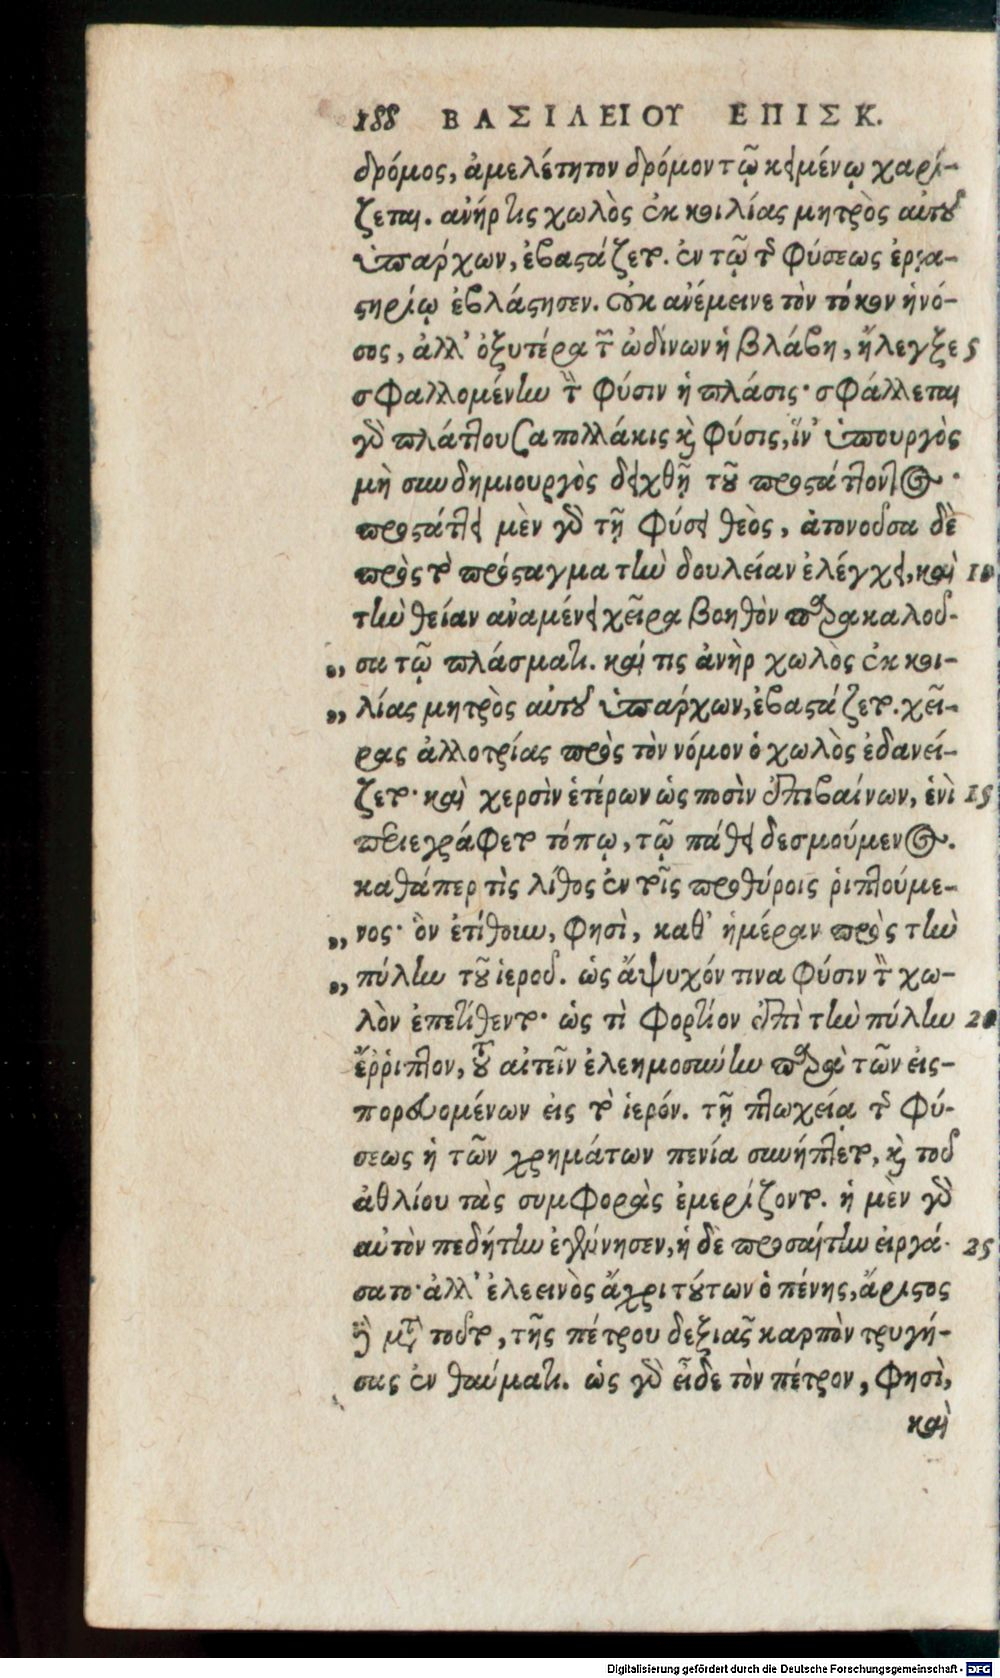 188 ΒΑΣΙΛΕΙΟΥ ΕΠΙΣΚ.
δρόμος, ἀμελέτητον δρόμον τῷ κειμένῳ χαρί-
ζεται. ἀνήρ τις χωλὸς ἐκ κοιλίας μητρὸς αὐτοῦ
ὑπάρχων, ἐβαστάζετο. ἐν τῷ τῆς φύσεως ἐργα-
στηρίῳ ἐβλάστησεν. οὐκ ἀνέμεινε τὸν τόκον ἡ νό-
σος, ἀλλ' ὀξυτέρα τῶν ὠδίνων ἡ βλάβη, ἤλεγξε 5
σφαλλομένην τὴν φύσιν ἡ πλάσις· σφάλλεται
γὰρ πλάττουσα πολλάκις καὶ φύσις, ἵν' ὑπουργὸς
μὴ συνδημιουργὸς δειχθῇ τοῦ προστάττοντος·
προστάττει μὲν γὰρ τῇ φύσει θεὸς, ἀτονοῦσα δὲ
πρὸς τὸ πρόσταγμα τὴν δουλείαν ἐλέγχει, καὶ 10
τὴν θείαν ἀναμένει χεῖρα βοηθὸν παρακαλοῦ-
„ σα τῷ πλάσματι. καί τις ἀνὴρ χωλὸς ἐκ κοι-
„ λίας μητρὸς αὐτοῦ ὑπάρχων, ἐβαστάζετο. χεῖ-
ρας ἀλλοτρίας πρὸς τὸν νόμον ὁ χωλὸς ἐδανεί-
ζετο· καὶ χερσὶν ἑτέρων ὡς ποσὶν ἐπιβαίνων, ἑνὶ 15
περιεγράφετο τόπῳ, τῷ πάθει δεσμούμενος.
καθάπερ τὶς λίθος ἐν τοῖς προθύροις ῥιπτούμε-
„ νος· ὃν ἐτίθουν, φησὶ, καθ' ἡμέραν πρὸς τὴν
„ πύλην τοῦ ἱεροῦ. ὡς ἄψυχόν τινα φύσιν τὸν χω-
λὸν ἐπετίθεντο· ὡς τὶ φορτίον ἐπὶ τὴν πύλην 20
ἔῤῥιπτον, τοῦ αἰτεῖν ἐλεημοσύνην παρὰ τῶν εἰς-
πορευομένων εἰς τὸ ἱερόν. τῇ πτωχείᾳ τῆς φύ-
σεως ἡ τῶν χρημάτων πενία συνήπτετο, καὶ τοῦ
ἀθλίου τὰς συμφορὰς ἐμερίζοντο. ἡ μὲν γὰρ
αὐτὸν πεδήτην ἐγέννησεν, ἡ δὲ προσαίτην εἰργά- 25
σατο· ἀλλ' ἐλεεινὸς ἄχρι τούτων ὁ πένης, ἄριστος
μετὰ τοῦτο, τῆς πέτρου δεξιᾶς καρπὸν τρυγή-
σας ἐν θαύματι. ὡς γὰρ εἶδε τὸν πέτρον, φησὶ,
καὶ
Digitalisierung gefördert durch die Deutsche Forschungsgemeinschaft - DFG